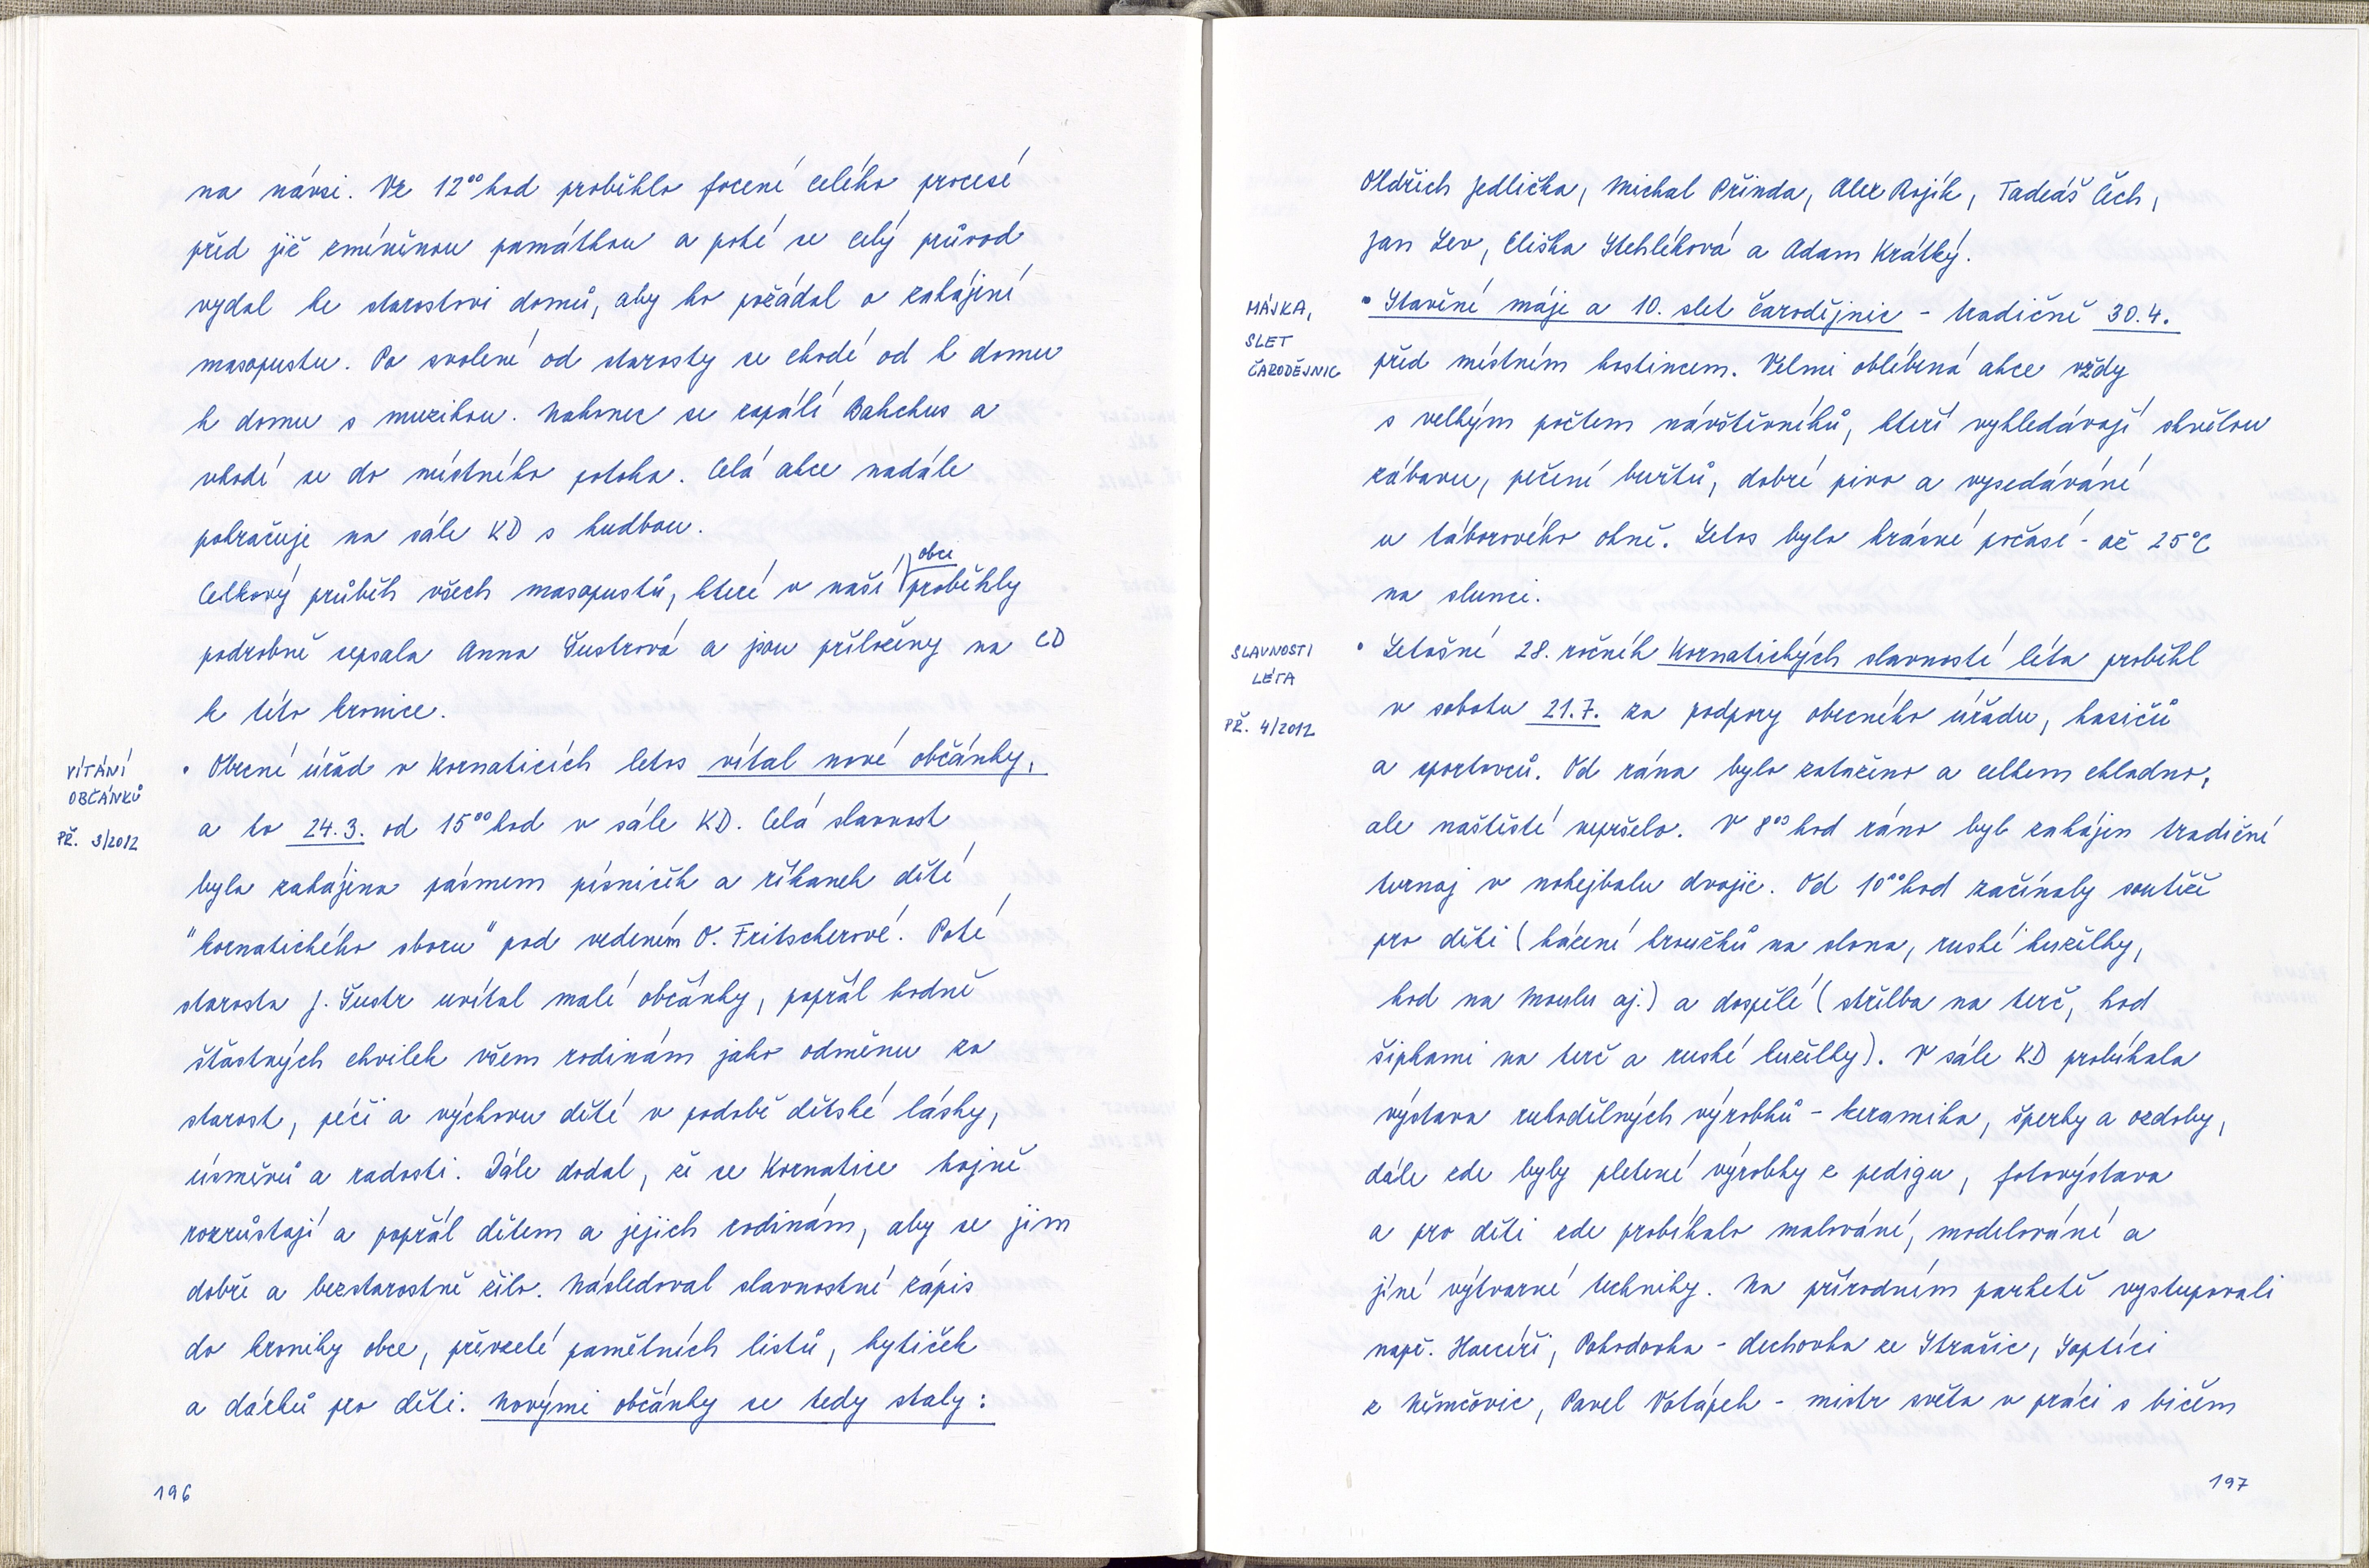 na návsi. Ve 12⁰⁰ hod proběhlo focení celého procesí
před již zmíněnou památkou a poté se celý průvod
vydal ke starostovi domů, aby ho požádal o zahájení
masopustu. Po svolení od starosty se chodí od k domu
k domu s muzikou. Nakonec se zapálí Bakchus a
vhodí se do místného potoka. Celá akce nadále
pokračuje na sále KD s hudbou.
Celkový průběh všech masopustů, které v naší obci proběhly
podrobně sepsala Anna Šustrová a jsou přiloženy na CD
k této kronice.
VÍTÁNÍ
OBČÁNKŮ
PŘ. 3/2012
• Obecní úřad v Kornaticích letos vítal nové občánky,
a to 24.3. od 15⁰⁰ hod v sále KD. Celá slavnost
byla zahájena pásmem písniček a říkanek dětí
"kornatického sboru" pod vedením O. Fritscherové. Poté
starosta J. Šustr uvítal malé občánky, popřál hodně
šťastných chvilek všem rodinám jako odměnu za
starost, péči a výchovu dětí v podobě dětské lásky,
úsměvů a radosti. Dále dodal, že se Kornatice hojně
rozrůstají a popřál dětem a jejich rodinám, aby se jim
dobře a bezstarostně žilo. Následoval slavnostní zápis
do kroniky obce, převzetí pamětních listů, kytiček
a dárků pro děti. Novými občánky se tedy staly:
196
Oldřich Jedlička, Michal Přinda, Alex Rojík, Tadeáš Čech,
Jan Lev, Eliška Stehlíková a Adam Krátký.
MÁJKA,
SLET
ČARODĚJNIC
• Stavění máje a 10. slet čarodějnic - tradičně 30.4.
před místním hostincem. Velmi oblíbená akce vždy
s velkým počtem návštěvníků, kteří vyhledávají skvělou
zábavu, pečení buřtů, dobré pivo a vysedávání
u táborového ohně. Letos bylo krásné počasí - až 25°C
na slunci.
SLAVNOSTI
LÉTA
PŘ. 4/2012
• Letošní 28. ročník Kornatických slavností léta proběhl
v sobotu 21.7. za podpory obecního úřadu, hasičů
a sportovců. Od rána bylo zataženo a celkem chladno,
ale naštěstí nepršelo. V 8⁰⁰ hod ráno byl zahájen tradiční
turnaj v nohejbalu dvojic. Od 10⁰⁰ hod začínaly soutěže
pro děti (házení kroužků na slona, ruské kuželky,
hod na Moulu aj.) a dospělé (střelba na terč, hod
šipkami na terč a ruské kuželky). V sále KD probíhala
výstava rukodělných výrobků - keramika, šperky a ozdoby,
dále zde byly pletené výrobky z pedigu, fotovýstava
a pro děti zde probíhalo malování, modelování a
jiné výtvarné techniky. Na přírodním parketě vystupovali
např. Harcíři, Pohodovka - dechovka ze Strašic, Soptíci
z Němčovic, Pavel Votápek - mistr světa v práci s bičem
197